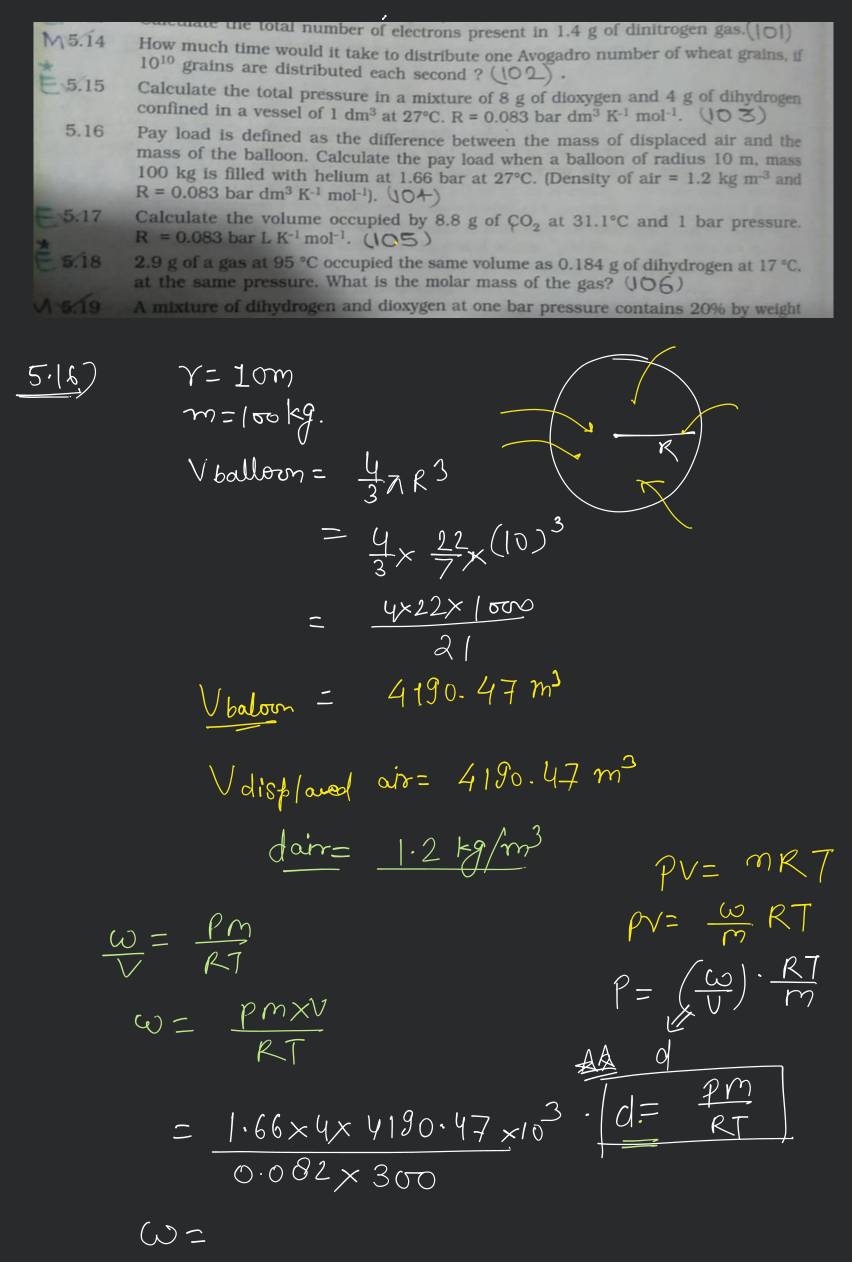 Calculate the total number of electrons present in 1.4 g of dinitrogen gas. (101)
M 5.14 How much time would it take to distribute one Avogadro number of wheat grains, if
10¹⁰ grains are distributed each second ? (102) .
E 5.15 Calculate the total pressure in a mixture of 8 g of dioxygen and 4 g of dihydrogen
confined in a vessel of 1 dm³ at 27°C. R = 0.083 bar dm³ K⁻¹ mol⁻¹. (103)
5.16 Pay load is defined as the difference between the mass of displaced air and the
mass of the balloon. Calculate the pay load when a balloon of radius 10 m, mass
100 kg is filled with helium at 1.66 bar at 27°C. (Density of air = 1.2 kg m⁻³ and
R = 0.083 bar dm³ K⁻¹ mol⁻¹). (104)
E 5.17 Calculate the volume occupied by 8.8 g of CO₂ at 31.1°C and 1 bar pressure.
R = 0.083 bar L K⁻¹ mol⁻¹. (105)
E 5.18 2.9 g of a gas at 95 °C occupied the same volume as 0.184 g of dihydrogen at 17 °C,
at the same pressure. What is the molar mass of the gas? (106)
M 5.19 A mixture of dihydrogen and dioxygen at one bar pressure contains 20% by weight
5.16)
r = 10m
m = 100 kg.
V balloon = 4/3 π R³
R
= 4/3 × 22/7 × (10)³
= 4×22×1000 / 21
V baloon = 4190.47 m³
V displaced air = 4190.47 m³
dair = 1.2 kg/m³
PV = nRT
PV = ω/m RT
P = (ω/V) · RT/m
d
d = PM/RT
ω/V = PM/RT
ω = PM×V / RT
= 1.66×4×4190.47×10³ / 0.082×300
ω =